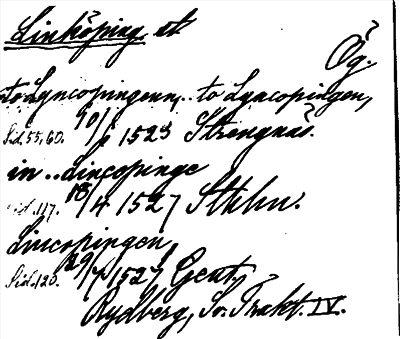 Linköping, st
Ög.
to Lyncopingenn,.. to Lyncopingen,
Sid. 55, 60. 10/6 1523 Strengnäs.
in .. Lincopinge
Sid. 117. 18/4 1527 Sthlm.
Lincopingen,
Sid. 120. 29/4 1527 Gent.,
Rydberg, Sv. Trakt. IV.